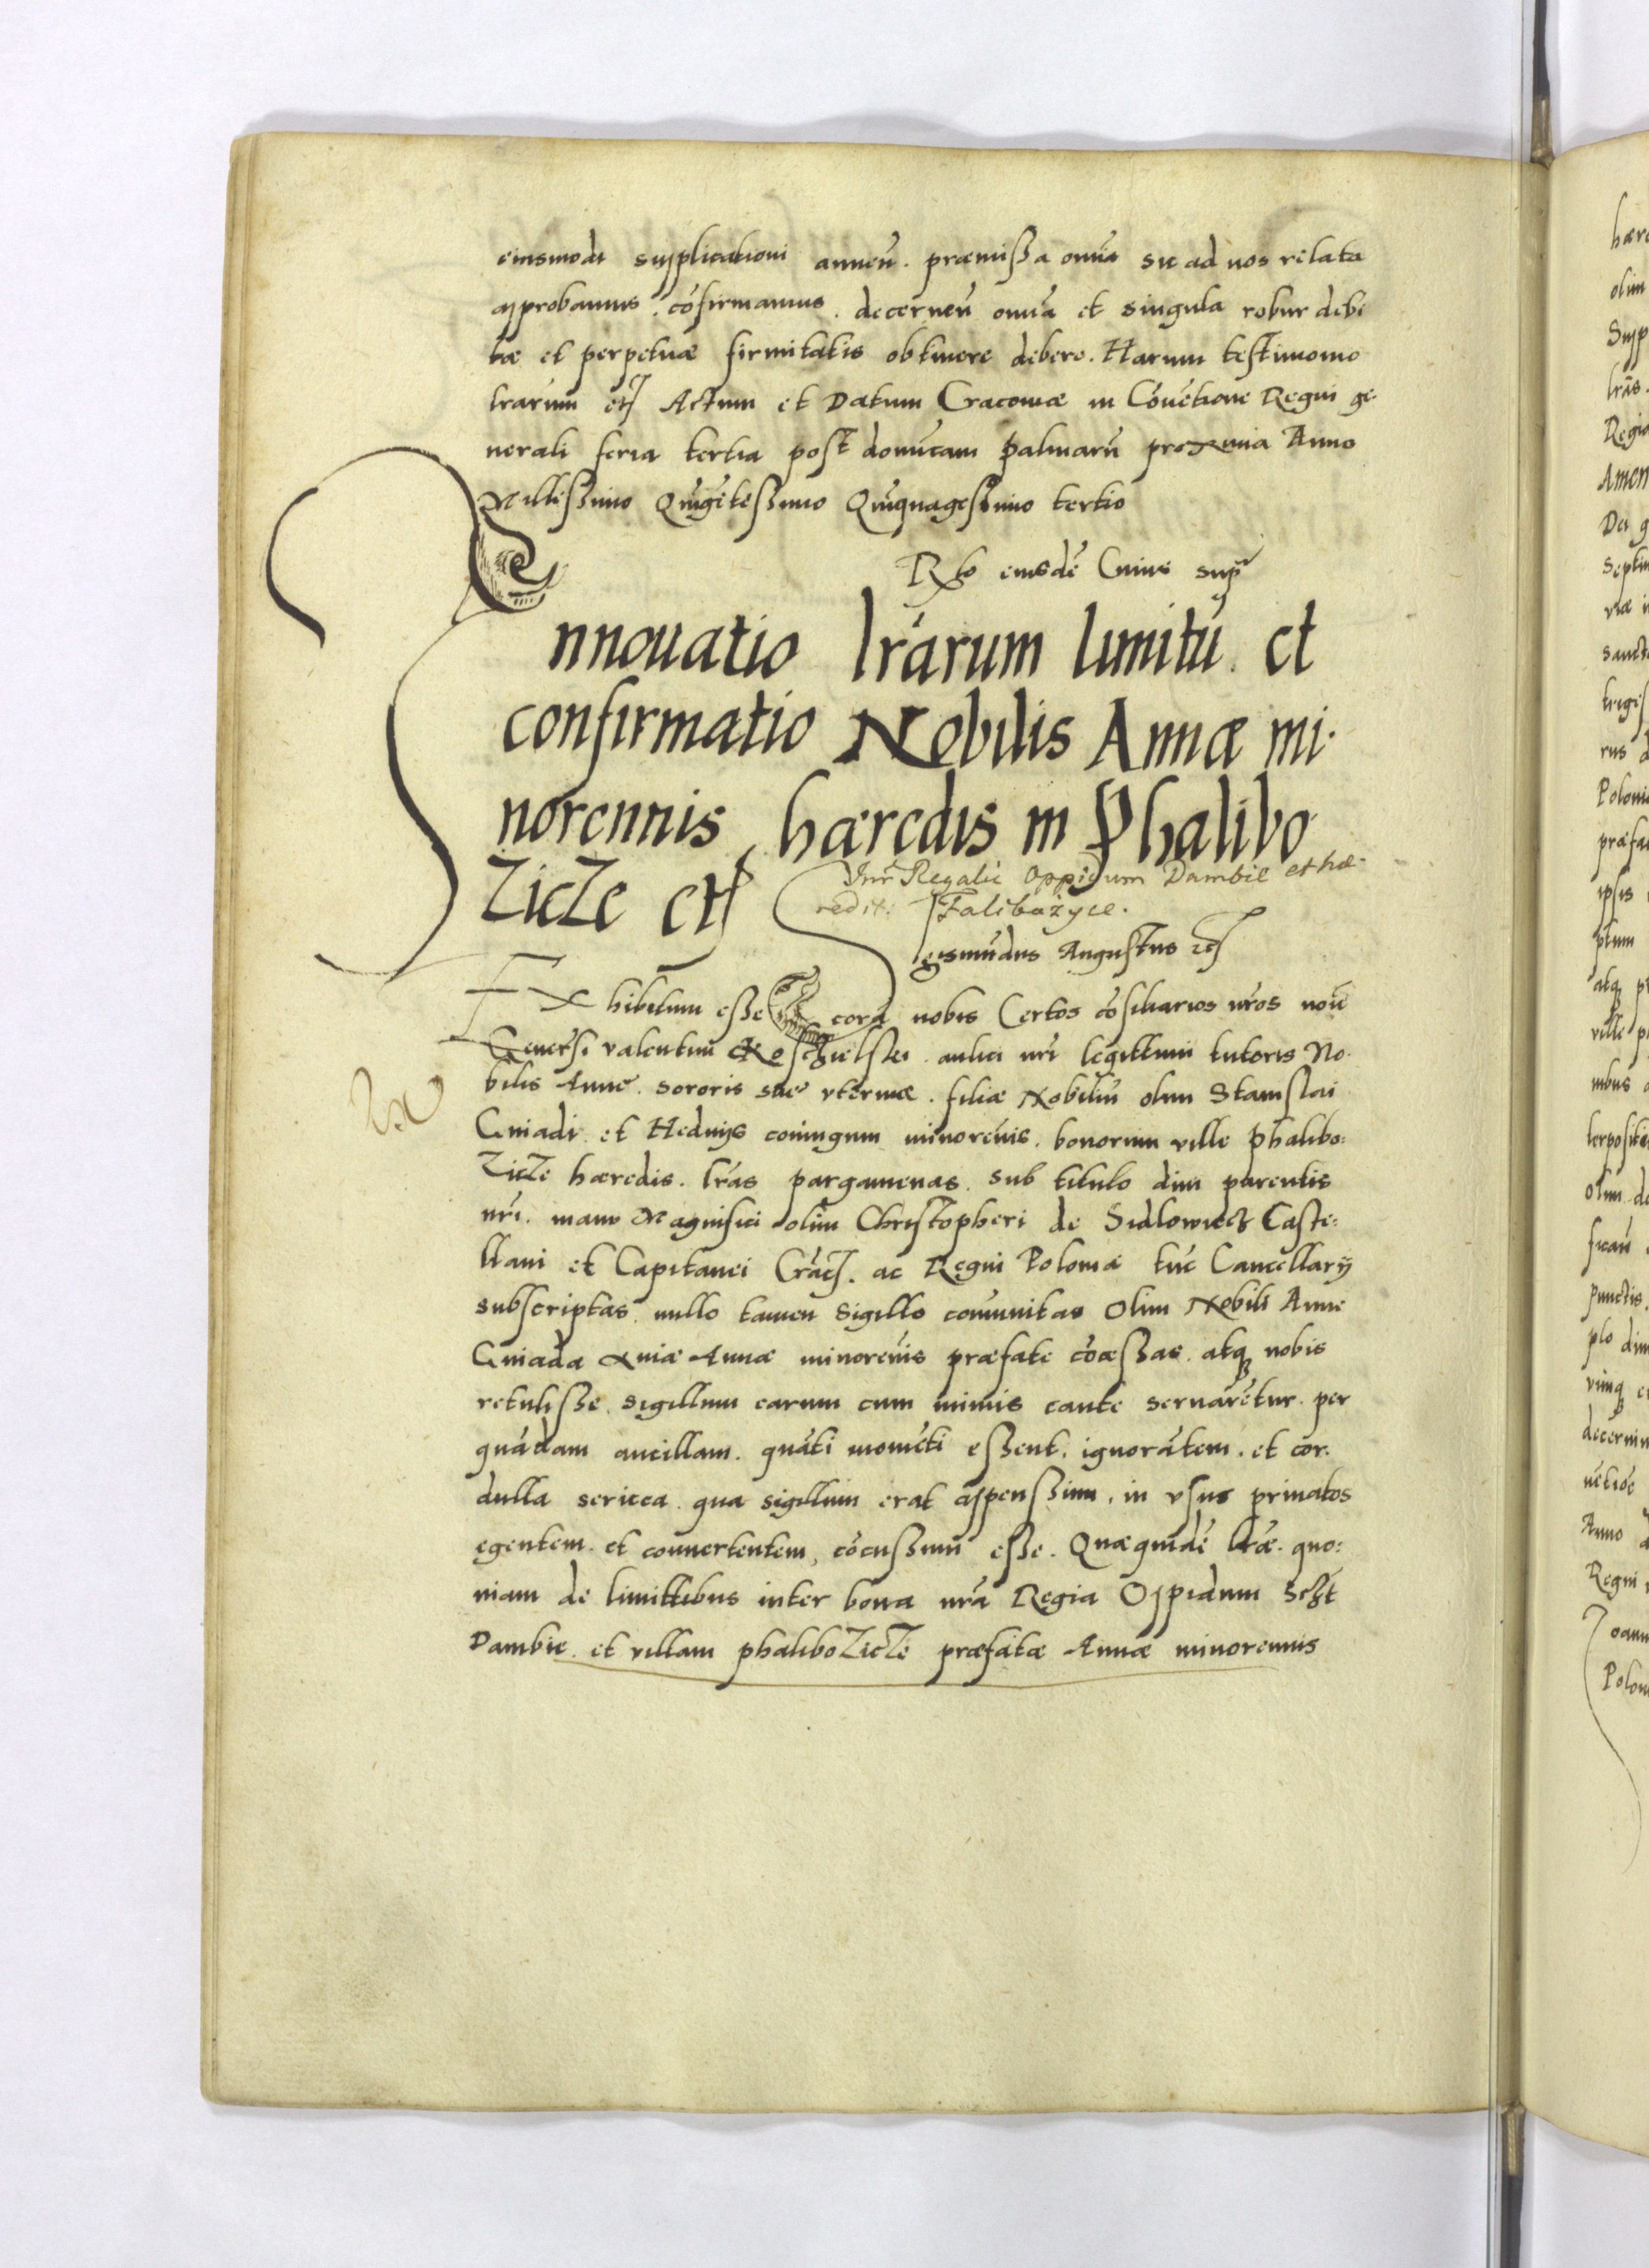 eiusmodi supplicationi annueñ. præmissa omīa sic ad nos relata
approbamus. cōfirmamus. decerneñ omīa et singula robur debi
tæ et perpetuæ firmitatis obtinere debere. Harum testimonio
lrārum etc Actum et Datum Cracowiæ in Cōuētione Regni ge-
nerali feria tertia post domīcam palmarū proxima Anno
Millessimo Quīgētessimo Quīquagessimo tertio
Rlo eiusdē Cuius supr
Innouatio lrārum limitū. et
confirmatio Nobilis Annæ mi-
norennis hæredis in Phalibo-
zicze etc
Intr Regalie Oppidum Dambie et hæ-
redit: Falibożyce.
Sigismūdus Augustus etc
Exhibitum esse corā nobis Certos cōsiliarios nrōs noīe
Generōsi valentini aulici nrī legittimi tutoris No-
bilis Anne. sororis sue vterinæ. filiæ Nobiliū olim Stanislai
Gniadi et Heduigis coniugum minorēnis. bonorum ville Phalibo:
zicze hæredis. lrās pargamenas. sub titulo diui parentis
nrī. manu Magnifici olim Christopheri de Sidlowiecz Caste:
llani et Capitanei Crāc. ac Regni Poloniæ tūc Cancellarij
subscriptas. nullo tamen sigillo comunitas Olim Nobili Anne
Gniada auiæ Annæ minorēnis præfate cōcessas. atq nobis
retulisse. sigillum earum cum minus caute seruarētur. per
quādam ancillam. quāti momēti essent. ignorātem. et cor-
dulla sericea qua sigillum erat appenssum. in vsus priuatos
egentem. et conuertentem, cōcussum esse. Quæquidē lrāe. quo:
niam de limittibus inter bona nrā Regia Oppidum Sczt
Dambie et villam phalibozicze præfatæ Annæ minorennis